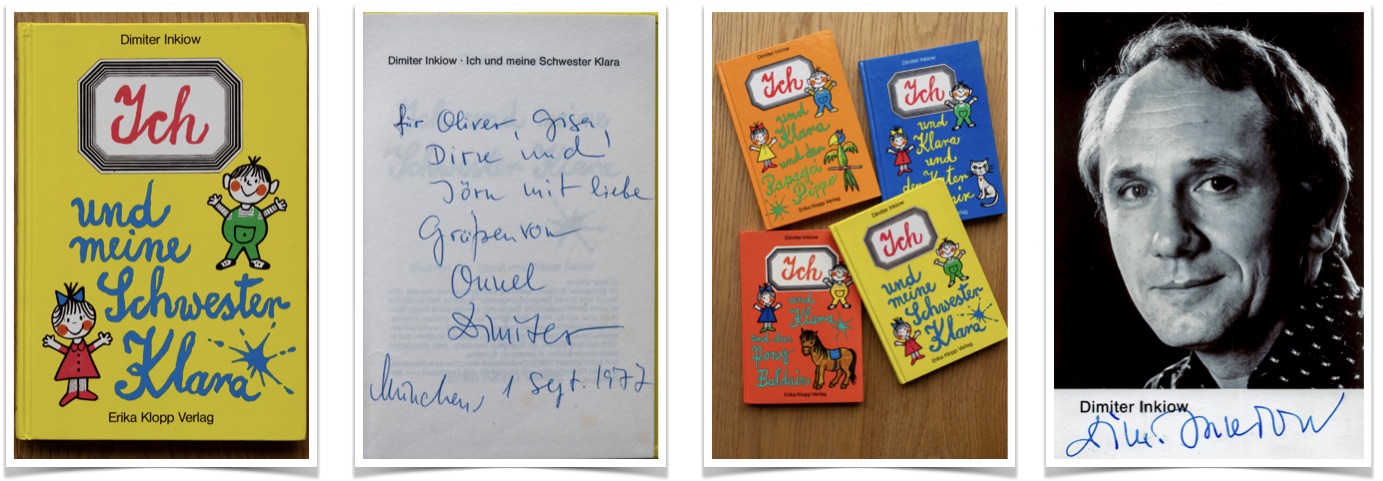 Dimiter Inkiow
Ich
und
meine
Schwester
Klara
Erika Klopp Verlag
Dimiter Inkiow · Ich und meine Schwester Klara
für Oliver, Gisa,
Dirk und
Jörn mit liebe
Grüßen von
Onkel
Dimiter
München, 1 Sept. 1977
Dimiter Inkiow
Ich
und
Klara
und der
Papagei
Pippo
Erika Klopp Verlag
Dimiter Inkiow
Ich
und
Klara
und
der Kater
Verlag
Dimiter Inkiow
Ich
und
Klara
und das
Pony
Balduin
Erika Klopp Verlag
Dimiter Inkiow
Ich
und
meine
Schwester
Klara
Erika Klopp Verlag
Dimiter Inkiow
Dimi. Inkiow